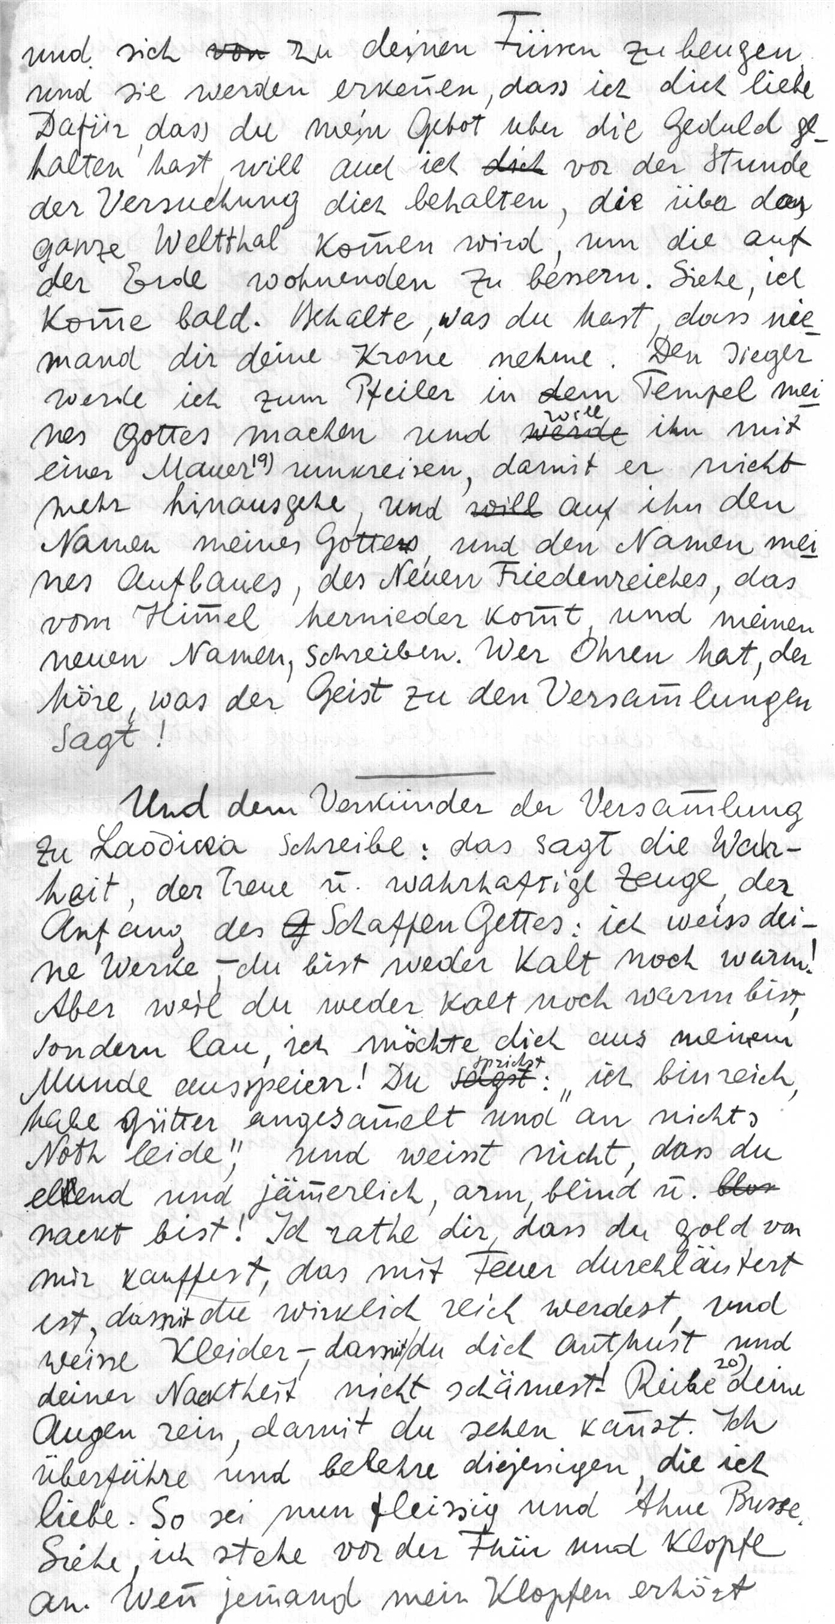 und sich von zu deinen Füssen zu beugen,
und sie werden erkeñen, dass ich dich liebe
Dafür, dass du mein Gebot uber die Geduld ge-
halten hast, will auch ich dich vor der Stunde
der Versuchung dich behalten, die über das
ganze Weltthal kom̄en wird, um die auf
der Erde wohnenden zu bessern. Siehe, ich
kom̄e bald. Behalte, was du hast, dass nie-
mand dir deine Krone nehme. Den Sieger
werde ich zum Pfeiler in dem Tempel mei
nes Gottes machen und werde will ihn mit
einer Mauer 19) umkreisen, damit er nicht
mehr hinausgehe, und will auf ihn den
Namen meines Gottes, und den Namen mei
nes Aufbaues, des Neuen Friedenreiches, das
vom Him̄el hernieder kom̄t, und meinen
neuen Namen, schreiben. Wer Ohren hat, der
höre, was der Geist zu den Versam̄lungen
sagt!
Und dem Verkünder der Versam̄lung
zu Laodicea schreibe: das sagt die Wahr-
heit, der Treue u. wahrhaftige Zeuge, der
Anfang des Schaffen Gottes: ich weiss dei-
ne Werke, - du bist weder kalt noch warm!
Aber weil du weder kalt noch warm bist,
sondern lau, ich möchte dich aus meinem
Munde ausspeien! Du sagst sprichst: „ich bin reich,
habe gütter angesam̄elt und an nichts
Noth leide", und weisst nicht, dass du
elend und jäm̄erlich, arm, blind u. blos
nackt bist! Ich rathe dir, dass du gold von
mir kauffest, das mit Feuer durchläutert
ist, damit du wirklich reich werdest, und
weisse Kleider -, damit du dich anthust und
deiner Nacktheit nicht schämest! Reibe 20) deine
Augen rein, damit du sehen kañst. Ich
überführe und belehre diejenigen, die ich
liebe. So sei nun fleissig und thue Busse.
Siehe, ich stehe vor der Thür und klopfe
an. Weñ jem̄and mein Klopfen erhört